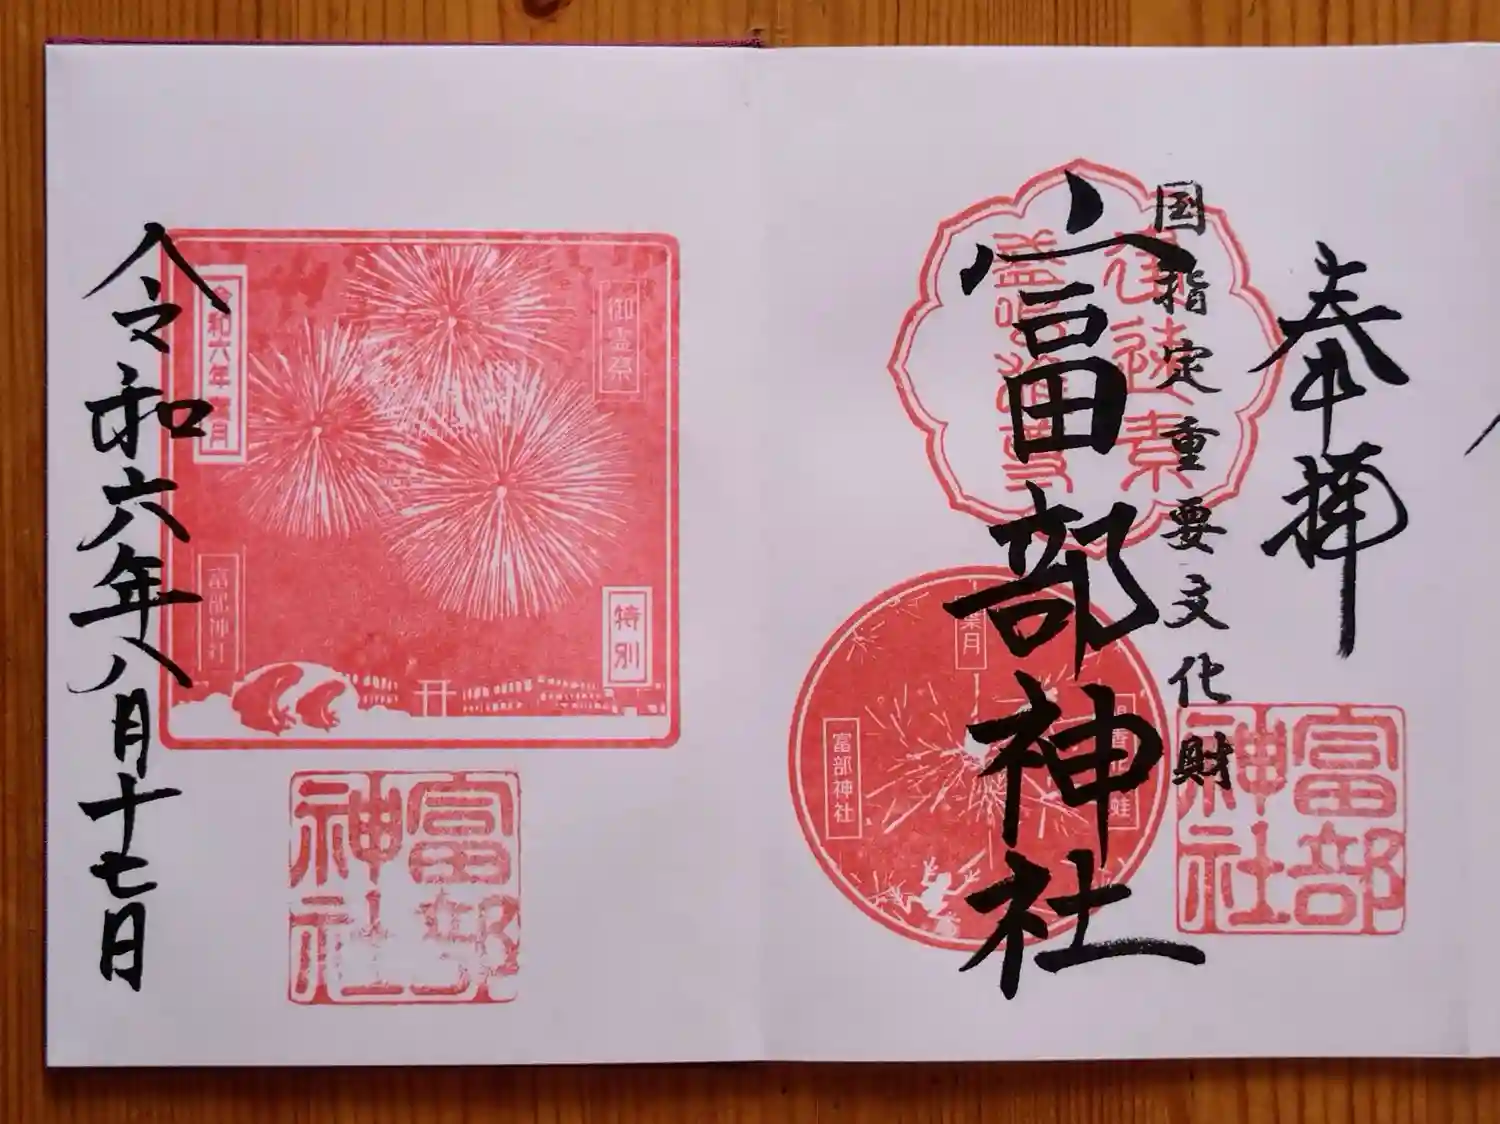 奉拝
国指定重要文化財
富部神社
富部神社
葉月
富部神社
令和六年八月十七日
御霊祭
特別
令和六年葉月
富部神社
富部神社